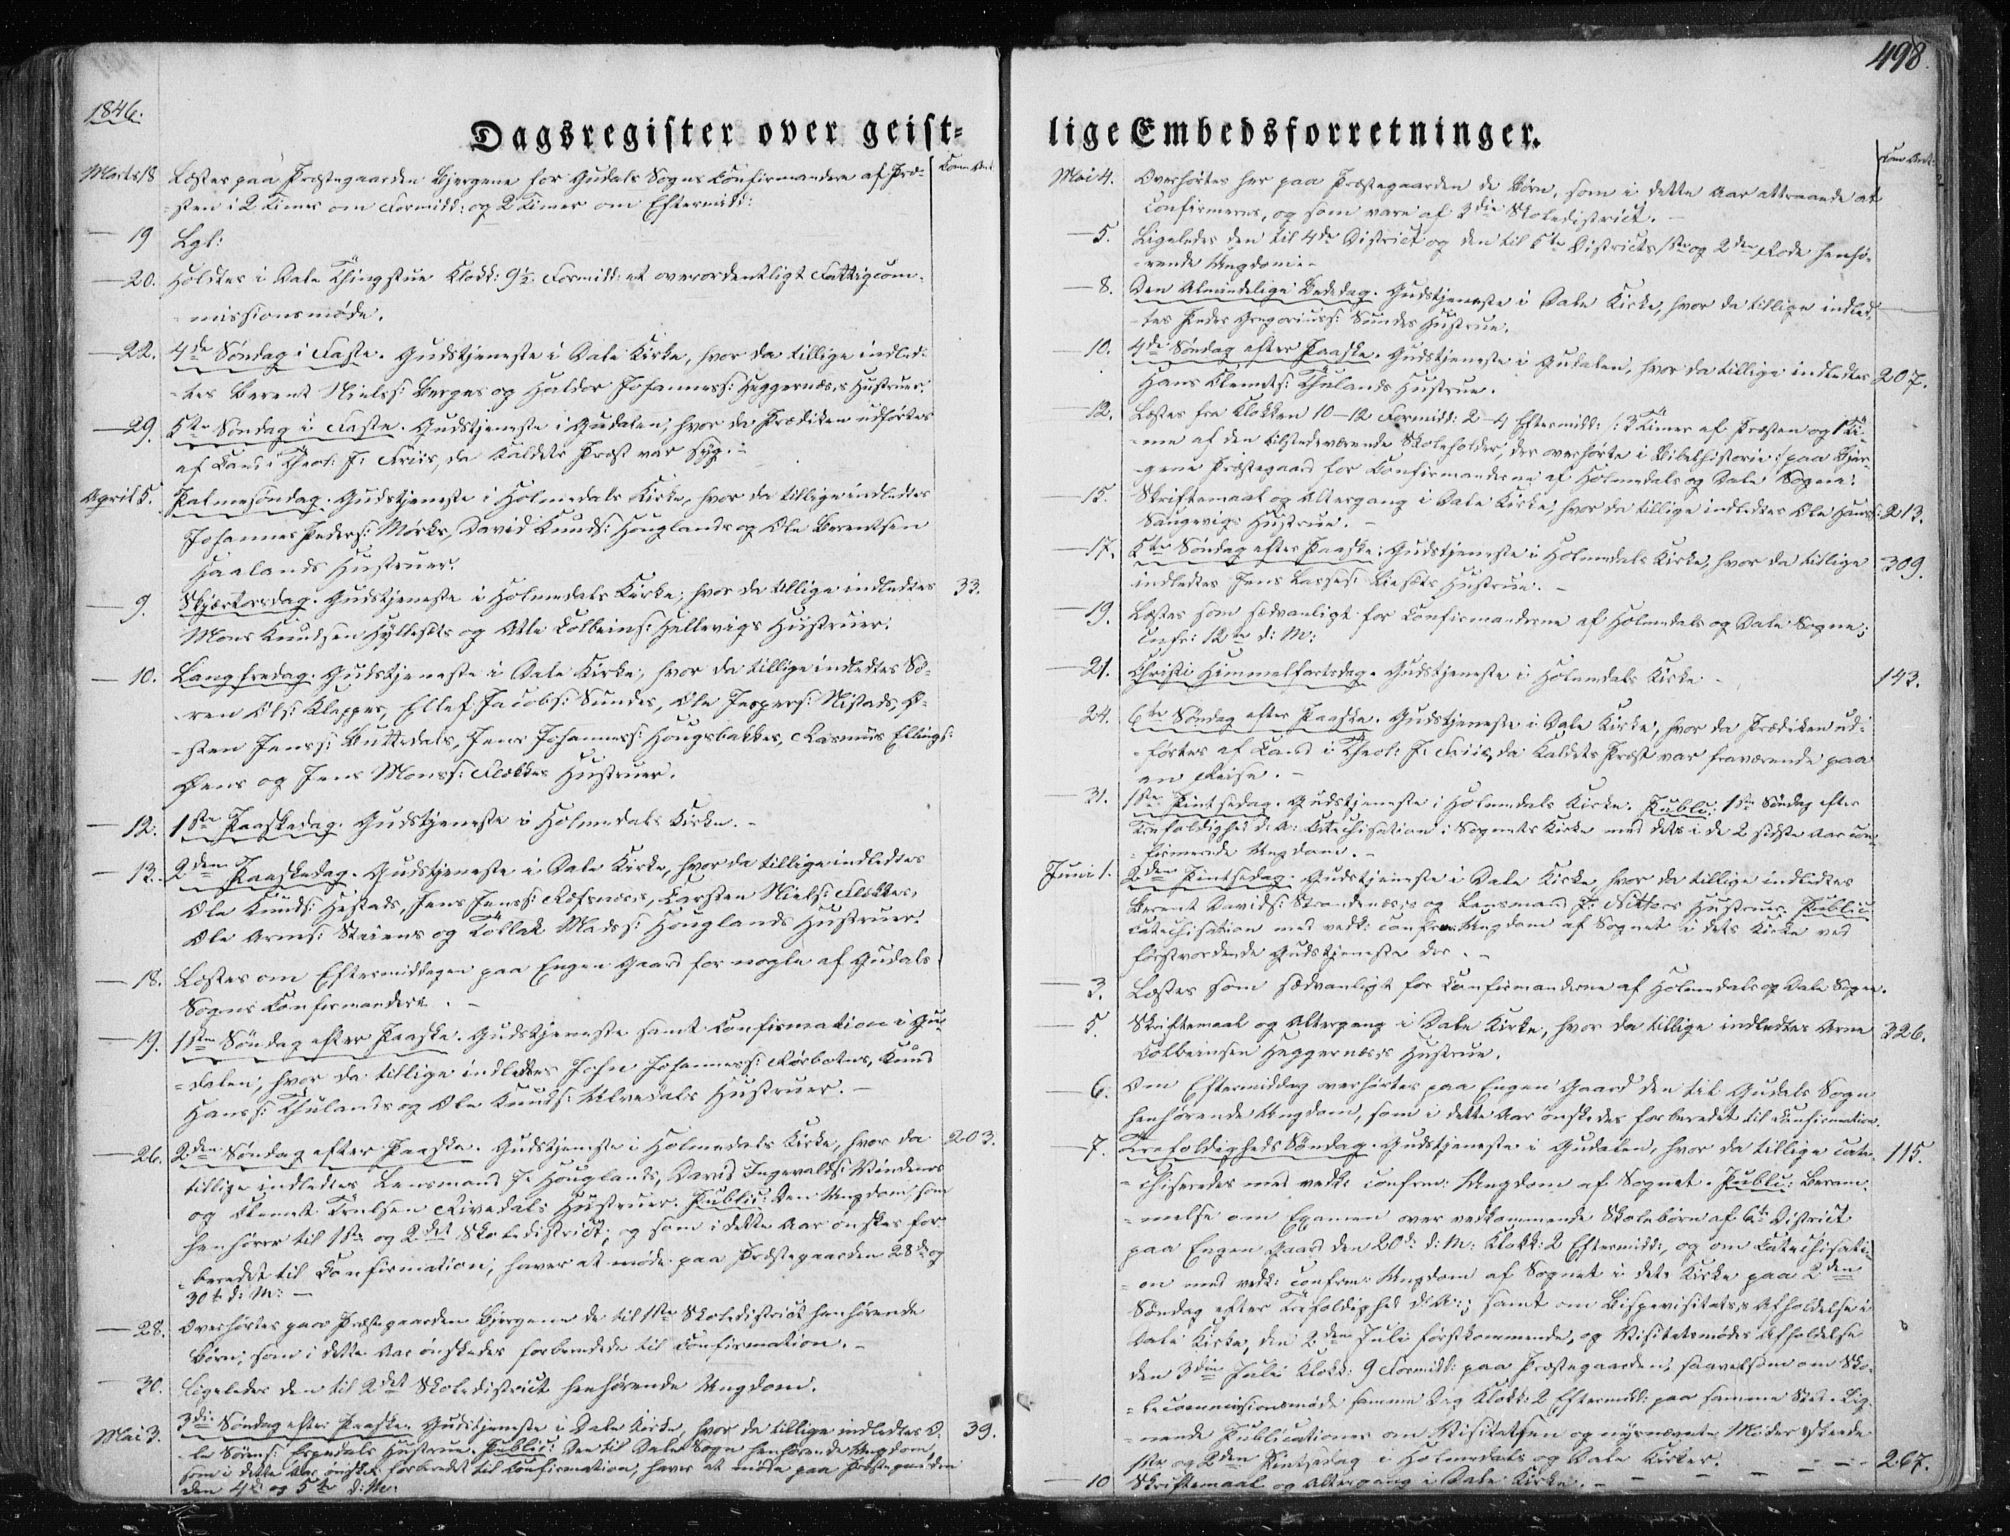 498.
1846.
Dagsregister over geist-
lige Embedsforretninger.
Marts 18 Læstes paa Præstegaarden Bjergene for Gudals Sogns Confirmandere af Præ-
-sten i 2 Timer om Formidd: og 2 Timer om Eftermidd:
— 19 Lgl:
— 20. Holdtes i Dale Thingstue Klokk: 9½ Formidd: et overordentligt Fattigcom-
-missionsmøde.
— 22. 4de Søndag i Faste. Gudstjeneste i Dale Kirke, hvor da tillige indled-
-tes Berent Nielss: Berges og Halder Johanness: Heggernæs's Hustruer.
— 29. 5te Søndag i Faste. Gudstjeneste i Gudalen, hvor da Prædiken udførtes
af Cand: i Theol: J. Friis, da Kaldets Præst var syg. —
April 5. Palmesøndag. Gudstjeneste i Holmedals Kirke, hvor da tillige indledtes
Johannes Peders: Mørks, David Knuds: Houglands og Ole Berentsen
Haalands Hustruer.
— 9. Skjærtorsdag. Gudstjeneste i Holmedals Kirke, hvor da tillige indledtes 33.
Mons Knudsen Hyllesets og Atle Colbeins: Hellevigs Hustruer.
— 10. Langfredag. Gudstjeneste i Dale Kirke, hvor da tillige indledtes Sø-
-ren Ols: Klepper, Ellef Jacobs: Sundes, Ole Jespers: Nistads,
-sten Jenss: Buttedals, Jens Johanness: Hougsbakkes, Rasmus Ellings:
Øens og Jens Monss: Flekkes Hustruer.
— 12. 1ste Paaskedag. Gudstjeneste i Holmedals Kirke. —
— 13. 2den Paaskedag. Gudstjeneste i Dale Kirke, hvor da tillige indledtes
Ole Knuds: Hestads, Jens Jenss: Refsnæs's, Carsten Niels: Flekkes,
Ole Arns: Steiens og Tollak Madss: Houglands Hustruer.
— 18. Læstes om Eftermiddagen paa Engen Gaard for nogle af Gudals
Sogns Confirmandere. —
— 19. 1ste Søndag efter Paaske. Gudstjeneste samt Confirmation i Gu-
-dalen, hvor da tillige indledtes John Johanness: Rørbotns, Knud
Hanss: Thulands og Ole Knuds: Ulvedals Hustruer. —
— 26. 2den Søndag efter Paaske. Gudstjeneste i Holmedals Kirke, hvor da 203.
tillige indledtes Lensmand J. Houglands, David Ingevalds: Vindenes
og Klemet Truelsen Rivedals Hustruer. Public: Den Ungdom som
henhører til 1ste og 2det Skoledistrict, og som i dette Aar ønskes for-
-beredet til Confirmation, haver at møde paa Præstegaarden 28de og
30te d: M: —
— 28. Overhørtes paa Præstegaarden Bjergene de til 1ste Skoledistrict henhørende
Børn, som i dette Aar ønskedes forberedede til Confirmation. —
— 30. Ligeledes den til 2det Skoledistrict henhørende Ungdom.
Mai 3. 3die Søndag efter Paaske. Gudstjeneste i Dale Kirke, hvor da tillige indledtes O- 39.
-le Sørens: Espedals Hustrue. Public: Den til Dale Sogn henhørende Ungdom,
som i dette Aar ønskes forberedet til Confirmation, haver at møde paa Præstegaarden
den 4de og 5te d: M:
Mai 4. Overhørtes her paa Præstegaarden de Børn, som i dette Aar attraaede at
confirmeres, og som vare af 3die Skoledistrict. —
— 5. Ligeledes den til 4de District og den til 5te Districts 1ste og 2den Rode henhø-
-rende Ungdom. —
— 8. Den Almindelige Bededag. Gudstjeneste i Dale Kirke, hvor da tillige indled-
-tes Peder Gregoriuss: Sundes Hustrue.
— 10. 4de Søndag efter Paaske. Gudstjeneste i Gudalen, hvor da tillige indledtes 207.
Hans Klemets: Thulands Hustrue.
— 12. Læstes fra Klokken 10–12 Formidd: 2–4 Eftermidd: /: 3 Timer af Præsten og 1 Ti-
-me af den tilstedeværende Skoleholder, der overhørte i Bibelhistorie :/ paa Bjer-
-gene Præstegaard for Confirmanderne af Holmedals og Dale Sogne.
— 15. Skriftemaal og Altergang i Dale Kirke, hvor da tillige indledtes Ole Hanss: 213.
Saugevigs Hustrue. —
— 17. 5te Søndag efter Paaske. Gudstjeneste i Holmedals Kirke, hvor da tillige 309.
indledtes Jens Lasses: Hustrue. —
— 19. Læstes som sædvanligt for Confirmanderne af Holmedals og Dale Sogne;
confr: 12te d: M:
— 21. Christi Himmelfartsdag. Gudstjeneste i Holmedals Kirke — 143.
— 24. 6te Søndag efter Paaske. Gudstjeneste i Dale Kirke, hvor da Prædiken ud-
-førtes af Cand: i Theol: J. Friis, da Kaldets Præst var fraværende paa
en Reise. —
— 31. 1ste Pintsedag. Gudstjeneste i Holmedals Kirke. Public: 1ste Søndag efter
Trefoldighed d: A: Catechisation i Sognets Kirke med dets i de 2 sidste Aar con-
-firmerede Ungdom. —
Juni 1. 2den Pintsedag. Gudstjeneste i Dale Kirke, hvor da tillige indledtes
Berent Davids: Strandenæs's og Lensmand J. Nitters Hustruer. Public:
Catechisation med vedk: confirm: Ungdom af Sognet i dets Kirke ved
førstvordende Gudstjeneste der. —
— 3. Læstes som sædvanligt for Confirmanderne af Holmedals og Dale Sogne.
— 5. Skriftemaal og Altergang i Dale Kirke, hvor da tillige indledtes Arne 326.
Colbeinsen Heggernæs's Hustrue.
— 6. Om Eftermiddag overhørtes paa Engen Gaard den til Gudals Sogn
henhørende Ungdom, som i dette Aar ønskedes forberedet til Confirmation.
— 7. Trefoldigheds Søndag. Gudstjeneste i Gudalen, hvor da tillige cate- 115.
-chiseredes med vedk: confirm: Ungdom af Sognet. Public: Beram-
-melse om Examen over vedkommende Skolebørn af 6te District
paa Engen Gaard den 20de d: M: Klokk: 2 Eftermidd:, og om Catechisati-
-on med vedk: confirm: Ungdom af Sognet i dets Kirke paa 2den
Søndag efter Trefoldighed d: A:; samt om Bispevisitats's Afholdelse i
Dale Kirke, den 2den Juli førstkommende, og Visitatsmødes Afholdelse
den 3die Juli Klokk: 9 Formidd: paa Præstegaarden, saavelsom om Sko-
-lecommissionsmøde samme Dag Klokk: 2 Eftermidd: paa samme Sted. Lig-
-nende Publicationer om Visitatsen og nysnævnte Møder skeede
1ste og 2den Pintsedag i Holmedals og Dale Kirker.
— 10 Skriftemaal og Altergang i Dale Kirke. — 267.